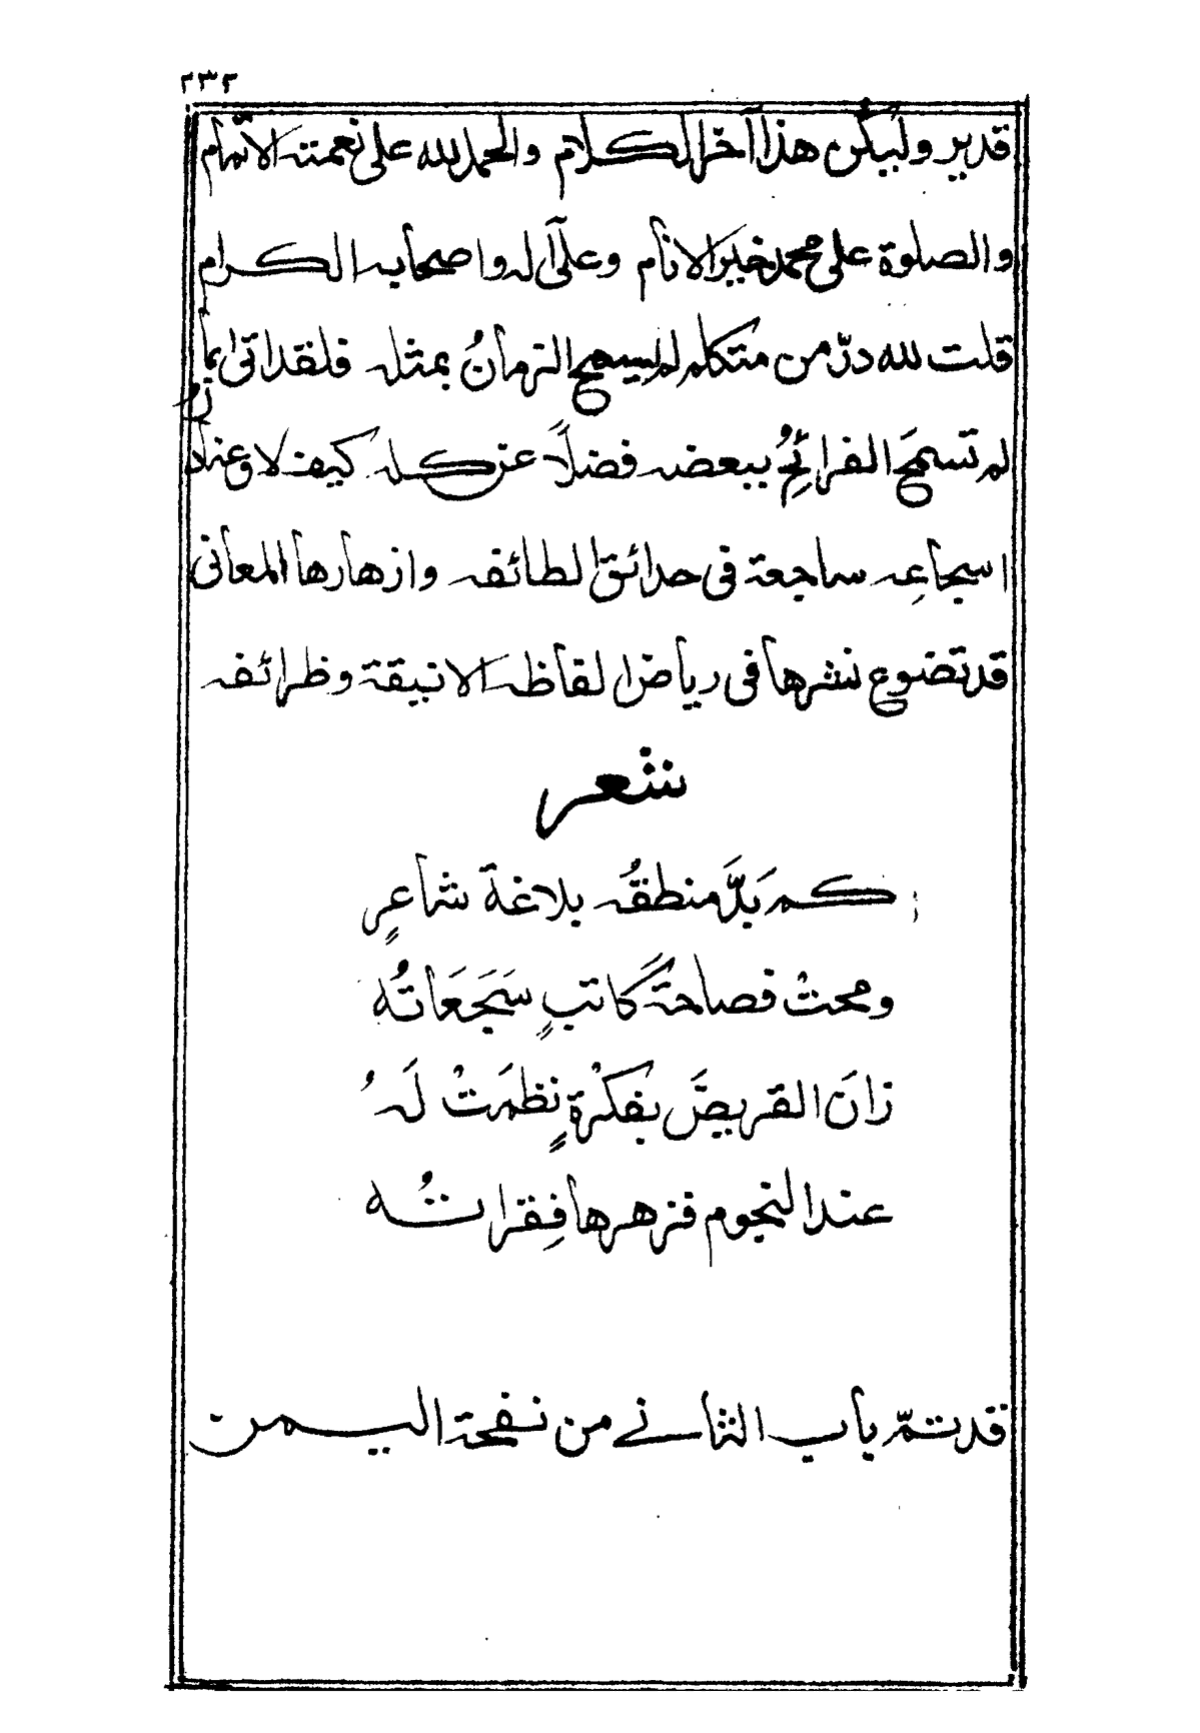 ٢٣٢
قدير وليكن هذا آخر الكلام والحمد لله على نعمته الاتمام
والصلوة على محمد خير الانام وعلى آله واصحابه الكرام
قلت لله درّ من متكلم لم يسمح الزمانُ بمثله فلقد اتى بما
لم تسمَح القرائحُ ببعضه فضلًا عن كله كيف لا وعنادل
اسجاعِه ساجعة فى حدائق لطائفه وازهارها المعانى
قد تضوع نشرها فى رياض الفاظه الانيقة وظرائفه
شعر
كم بَذَّ منطقُه بلاغة شاعرٍ
ومحتْ فصاحة كَاتبٍ سَجَعَاتُه
زانَ القريضَ بفكْرةٍ نظمَتْ لَهُ
عند النجوم فزهرها فِقراتُه
قد تمّ باب الثانے من نفحة اليمن